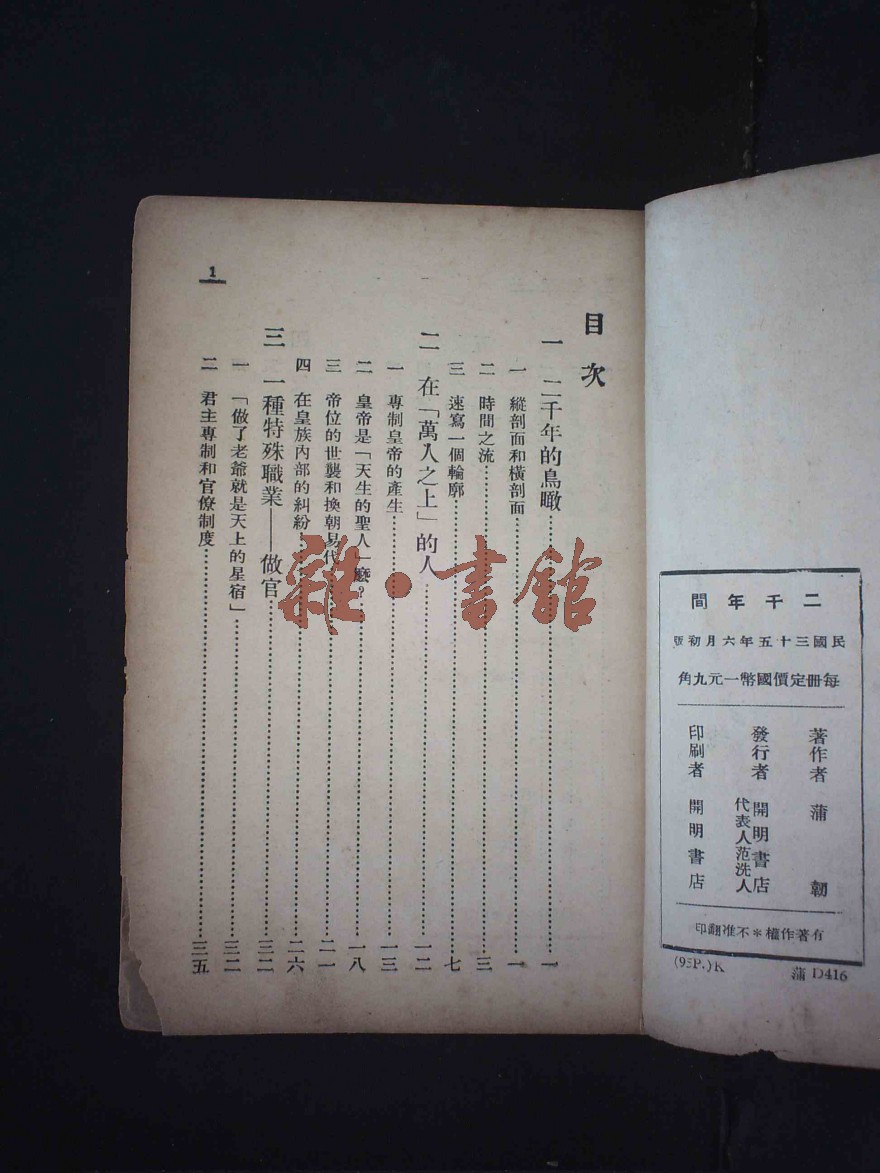 二千年間
民國三十五年六月初版
每冊定價國幣一元九角
著作者 蒲韌
發行者 開明書店
代表人范洗人
印刷者 開明書店
有著作權＊不准翻印
(95P.)K 蒲 D416
目次
一 二千年的鳥瞰……一
一 縱剖面和橫剖面……一
二 時間之流……三
三 速寫一個輪廓……七
二 在「萬人之上」的人……一二
一 專制皇帝的產生……一三
二 皇帝是「天生的聖人」麼？……一八
三 帝位的世襲和換朝易代……二一
四 在皇族內部的糾紛……二六
三 一種特殊職業——做官……三二
一 「做了老爺就是天上的星宿」……三二
二 君主專制和官僚制度……三五
1
雜·書館